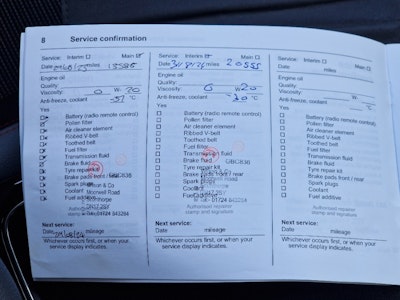 8 Service confirmation
Service: Interim Main
Date miles 13585
Engine oil
Quality:
Viscosity: 0 W- 20
Anti-freeze, coolant -37 °C
Yes
Battery (radio remote control)
Pollen filter
Air cleaner element
Ribbed V-belt
Toothed belt
Fuel filter
Transmission fluid
Brake fluid
Tyre repair kit
Brake pads front / rear
Spark plugs
Coolant
Fuel additive
GBC838
& Co
Moorwell Road
DN17 2SY
01724 843284
Next service:
Date mileage
Whichever occurs first, or when your
service display indicates.
Service: Interim Main
Date miles 20555
Engine oil
Quality:
Viscosity: 0 W-20
Anti-freeze, coolant °C
Yes
Battery (radio remote control)
Pollen filter
Air cleaner element
Ribbed V-belt
Toothed belt
Fuel filter
Transmission fluid
Brake fluid GBC838
Tyre repair kit
Brake pads front / rear
Spark plugs
Coolant
Fuel additive
Tel: 01724 843284
Authorised repairer
stamp and signature
Next service:
Date mileage
Whichever occurs first, or when your
service display indicates.
Service: Interim Main
Date miles
Engine oil
Quality:
Viscosity:
Anti-freeze, coolant °C
Yes
Battery (radio remote control)
Pollen filter
Air cleaner element
Ribbed V-belt
Toothed belt
Fuel filter
Transmission fluid
Brake fluid
Tyre repair kit
Brake pads front / rear
Spark plugs
Coolant
Fuel additive
Authorised repairer
stamp and signature
Next service:
Date mileage
Whichever occurs first, or when your
service display indicates.